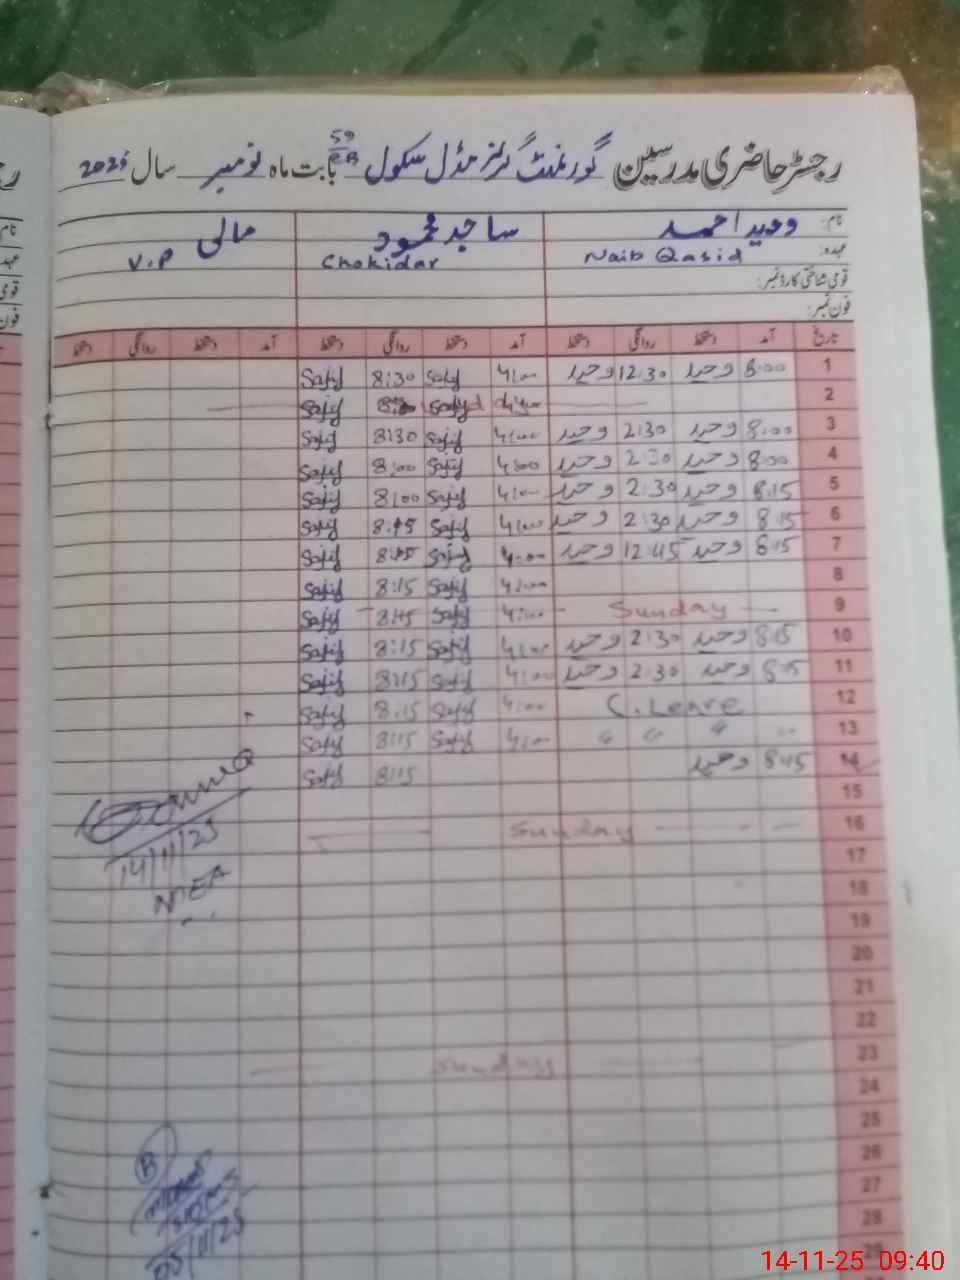 رجسٹر حاضری مدرسین گورنمنٹ گرلز مڈل سکول 59 بابت ماہ نومبر سال 2025
نام: وحید احمد ساجد محمود مالی
عہدہ: Naib Qasid Chokidar V.P
قومی شناختی کارڈ نمبر:
فون نمبر:
تاریخ آمد دستخط روانگی دستخط آمد دستخط روانگی دستخط آمد دستخط روانگی دستخط
1 8:00 وحید 12:30 وحید 4:00 Sajid 8:30 Sajid
2 Sajid
3 8:00 وحید 2:30 وحید 4:00 Sajid 8:30 Sajid
4 8:00 وحید 2:30 وحید 4:00 Sajid 8:00 Sajid
5 8:15 وحید 2:30 وحید 4:00 Sajid 8:00 Sajid
6 8:15 وحید 2:30 وحید 4:00 Sajid 8:15 Sajid
7 8:15 وحید 12:45 وحید 4:00 Sajid 8:15 Sajid
8 4:00 Sajid 8:15 Sajid
9 Sunday 4:00 Sajid 8:15 Sajid
10 8:15 وحید 2:30 وحید 4:00 Sajid 8:15 Sajid
11 8:15 وحید 2:30 وحید 4:00 Sajid 8:15 Sajid
12 C. Leave 4:00 Sajid 8:15 Sajid
13 " " " " 4:00 Sajid 8:15 Sajid
14 8:15 وحید 8:15 Sajid
15
16 Sunday
14/11/25
17
MEA
18
19
20
21
22
23 Sunday
24
25
26
B
27
28
05/11/25
29
14-11-25 09:40